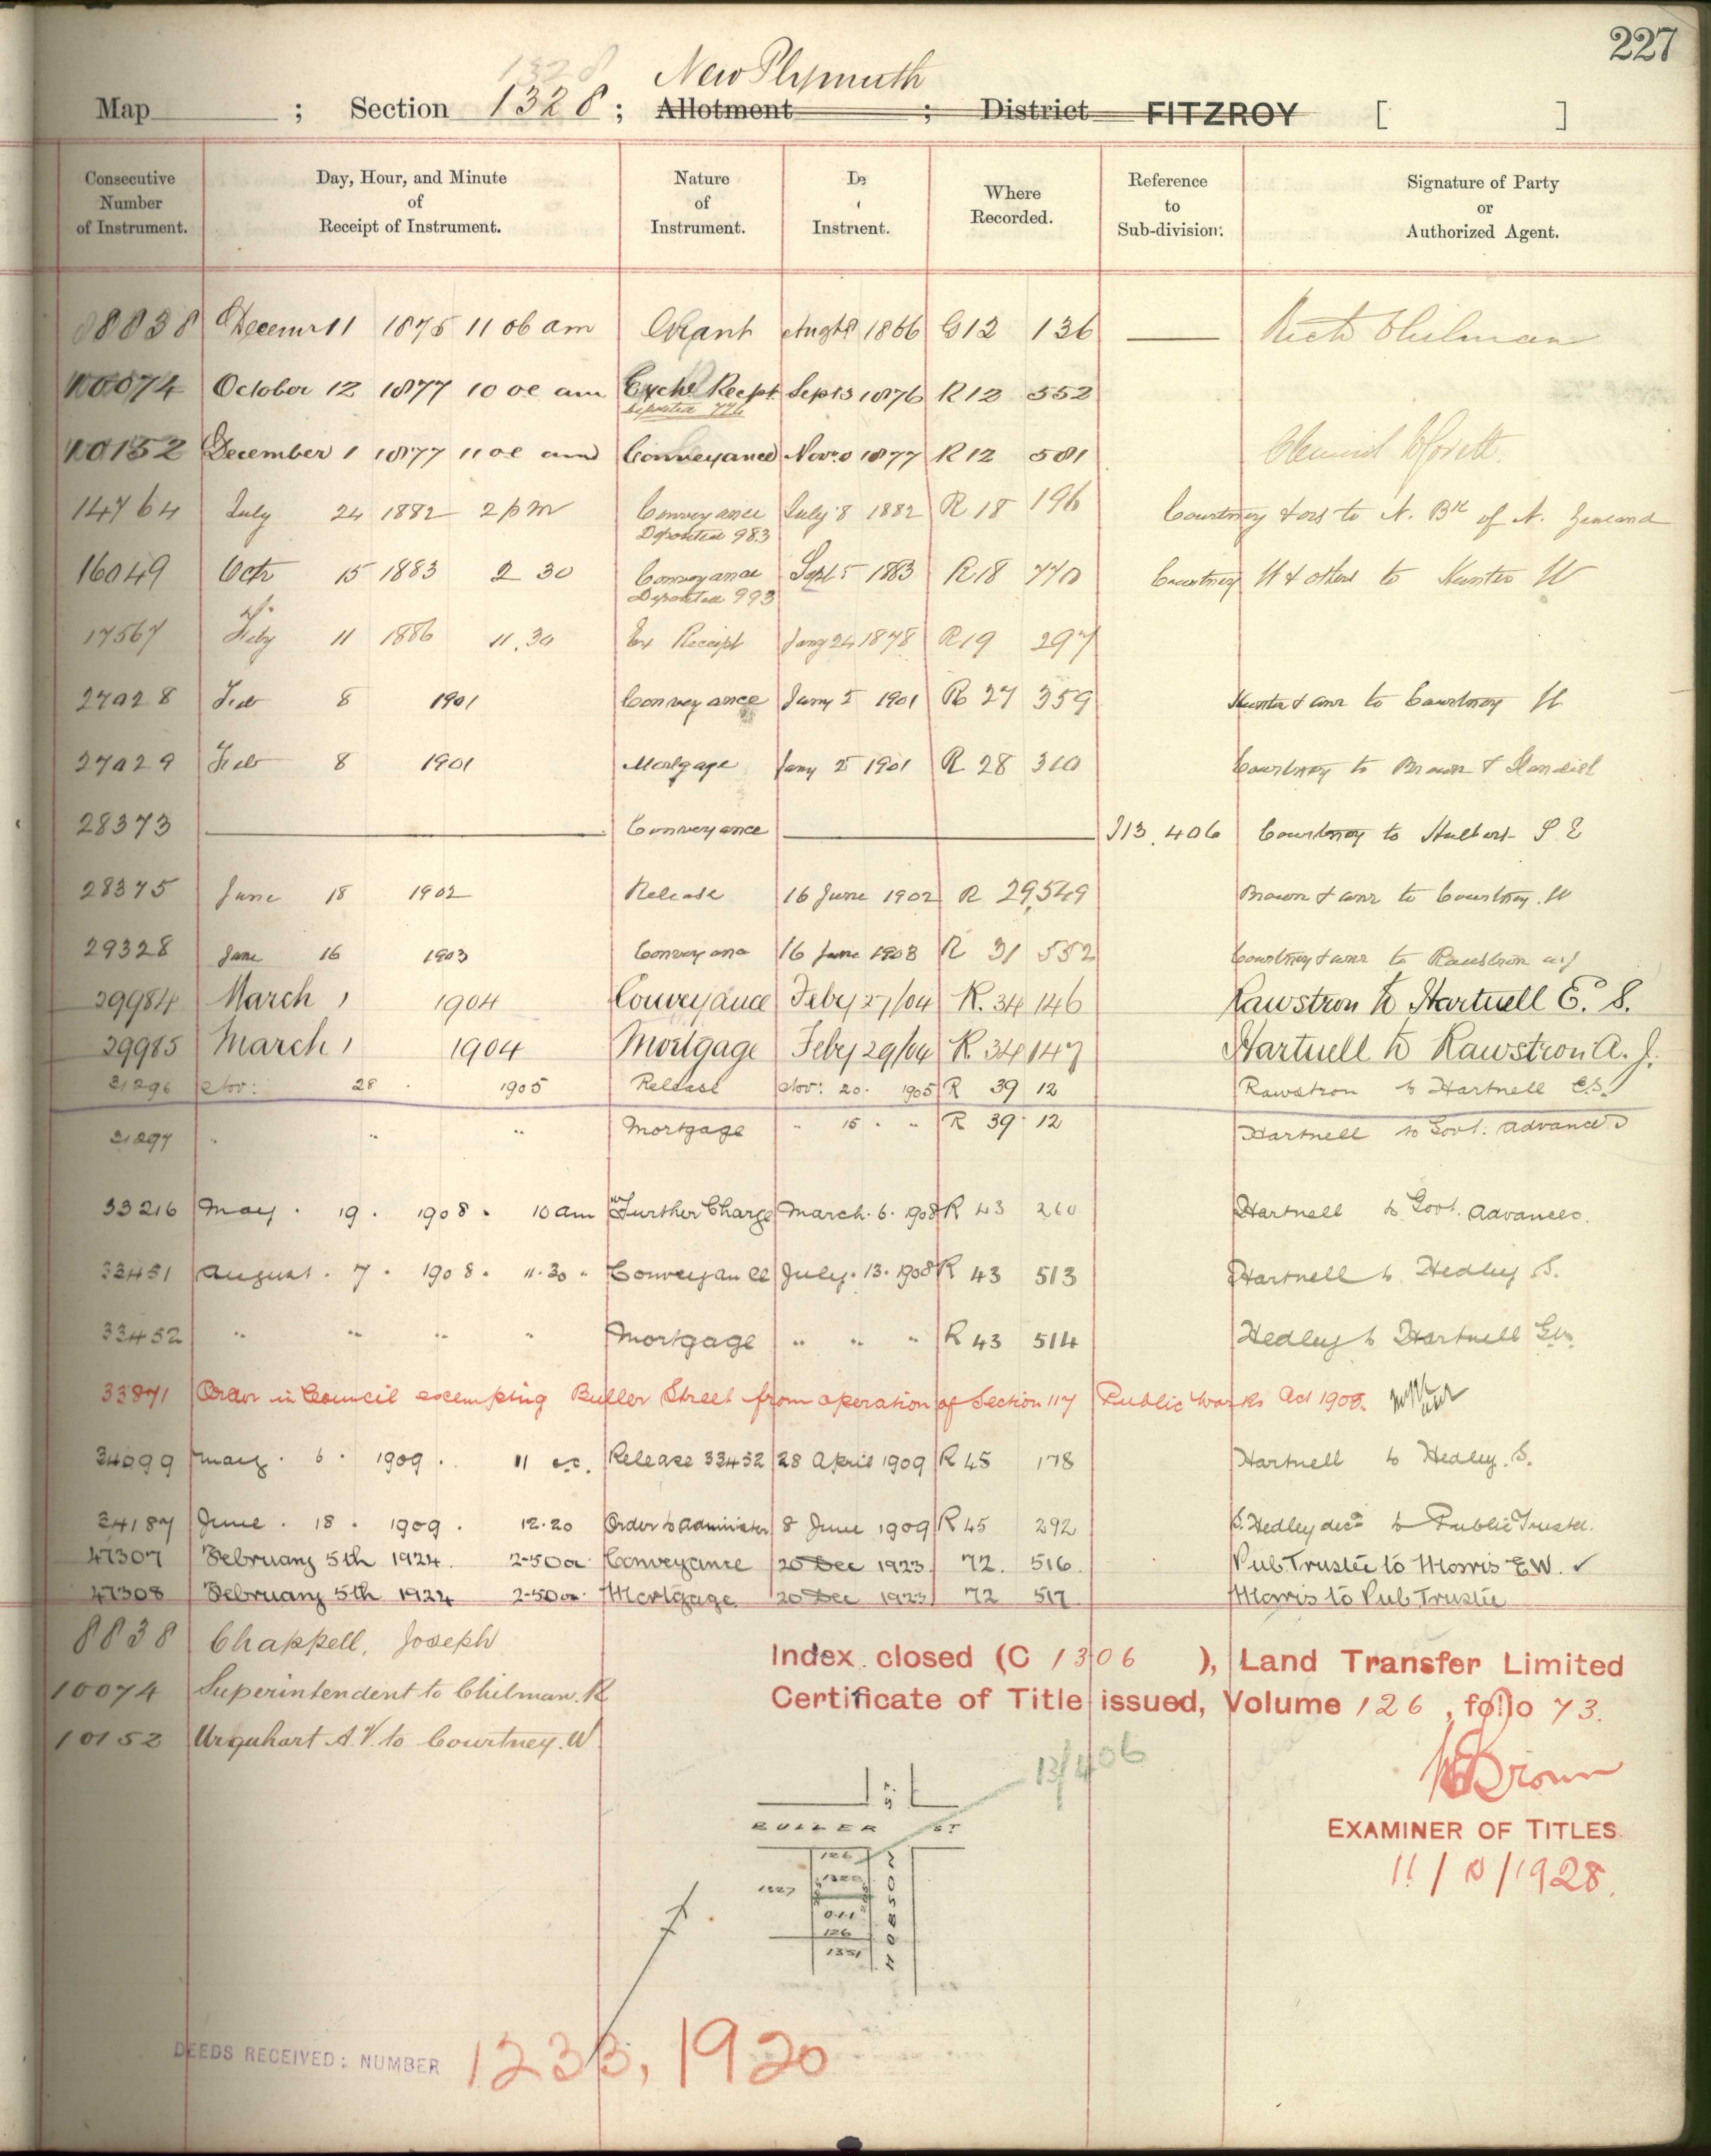 227
New Plymouth
Map ; Section 1328 ; Allotment ; District FITZROY [ ]
Consecutive Number of Instrument. Day, Hour, and Minute of Receipt of Instrument. Nature of Instrument. Where Recorded. Reference to Sub-division. Signature of Party or Authorized Agent.
8838 Decemr 11 1875 11 06 am Grant Augt 8 1866 G12 136 Richd Chilman
10074 October 12 1877 10 oc am Exche Recept Sept 13 1876 R12 552
Deposited 776
10152 December 1 1877 11 oc am Conveyance 1877 R12 581
14764 July 24 1882 2 pm Conveyance July 8 1882 R 18 196 Courtney & ors to N. Bk of N. Zealand
Deposited 983
16049 Octr 15 1883 2 30 Conveyance Sept 5 1883 R18 770 Courtney W & others to Hunter W
Deposited 993
17567 Feby 11 1886 11.30 Ex Receipt Jany 24 1878 R19 297
27028 Feb 8 1901 Conveyance Jany 5 1901 R 27 359 Hunter & anr to Courtney W
27029 Feb 8 1901 Mortgage Jany 5 1901 R 28 310 Courtney to Brown & Standish
28373 Conveyance I13.406 Courtney to Hulbert S E
28375 June 18 1902 Release 16 June 1902 R 29,549 Brown & anr to Courtney. W
29328 June 16 1903 Conveyance 16 June 1903 R 31 552 Courtney & anr to Rawstron a.j
29984 March 1 1904 Conveyance Feby 27/04 R. 34 146 Rawstron to Hartnell E. S.
29985 March 1 1904 Mortgage Feby 29/04 R. 34 147 Hartnell to Rawstron A. J.
31296 Nov: 28 . 1905 Release Nov: 20. 1905 R 39 12 Rawstron to Hartnell E.S.
31297 " " " Mortgage " 15 . " R 39 12 Hartnell to Govt. Advances
33216 May . 19 . 1908 . 10 am Further Charge March. 6. 1908 R 43 260 Hartnell to Govt. Advances.
33451 August . 7 . 1908 . 11.30 " Conveyance July. 13. 1908 R 43 513 Hartnell to Hedley S.
33452 " " " " Mortgage " " " R 43 514 Hedley to Hartnell
33871 Order in Council exempting Buller Street from operation of Section 117 Public Works Act 1908.
34099 May . 6 . 1909 . 11 o.c. Release 33452 28 April 1909 R 45 178 Hartnell to Hedley. S.
34187 June . 18 . 1909 . 12.20 Order to administer 8 June 1909 R 45 292 S. Hedley decd to Public Trustee.
47307 February 5th 1924. 2-50 Conveyance 20 Dec 1923 72. 516. Pub. Trustee to Morris E W. ✓
47308 February 5th 1924 2-50 Mortgage 20 Dec 1923 72 517 Morris to Pub Trustee
8838 Chappell, Joseph
10074 Superintendent to Chilman. R
10152 Urquhart A.V. to Courtney. W
Index closed (C 1306 ), Land Transfer Limited
Certificate of Title issued, Volume 126 , folio 73.
Brown
EXAMINER OF TITLES.
1928.
13/406
ST.
BULLER ST
HOBSON
126
1327
1328
126
1351
DEEDS RECEIVED: NUMBER 1233, 1920